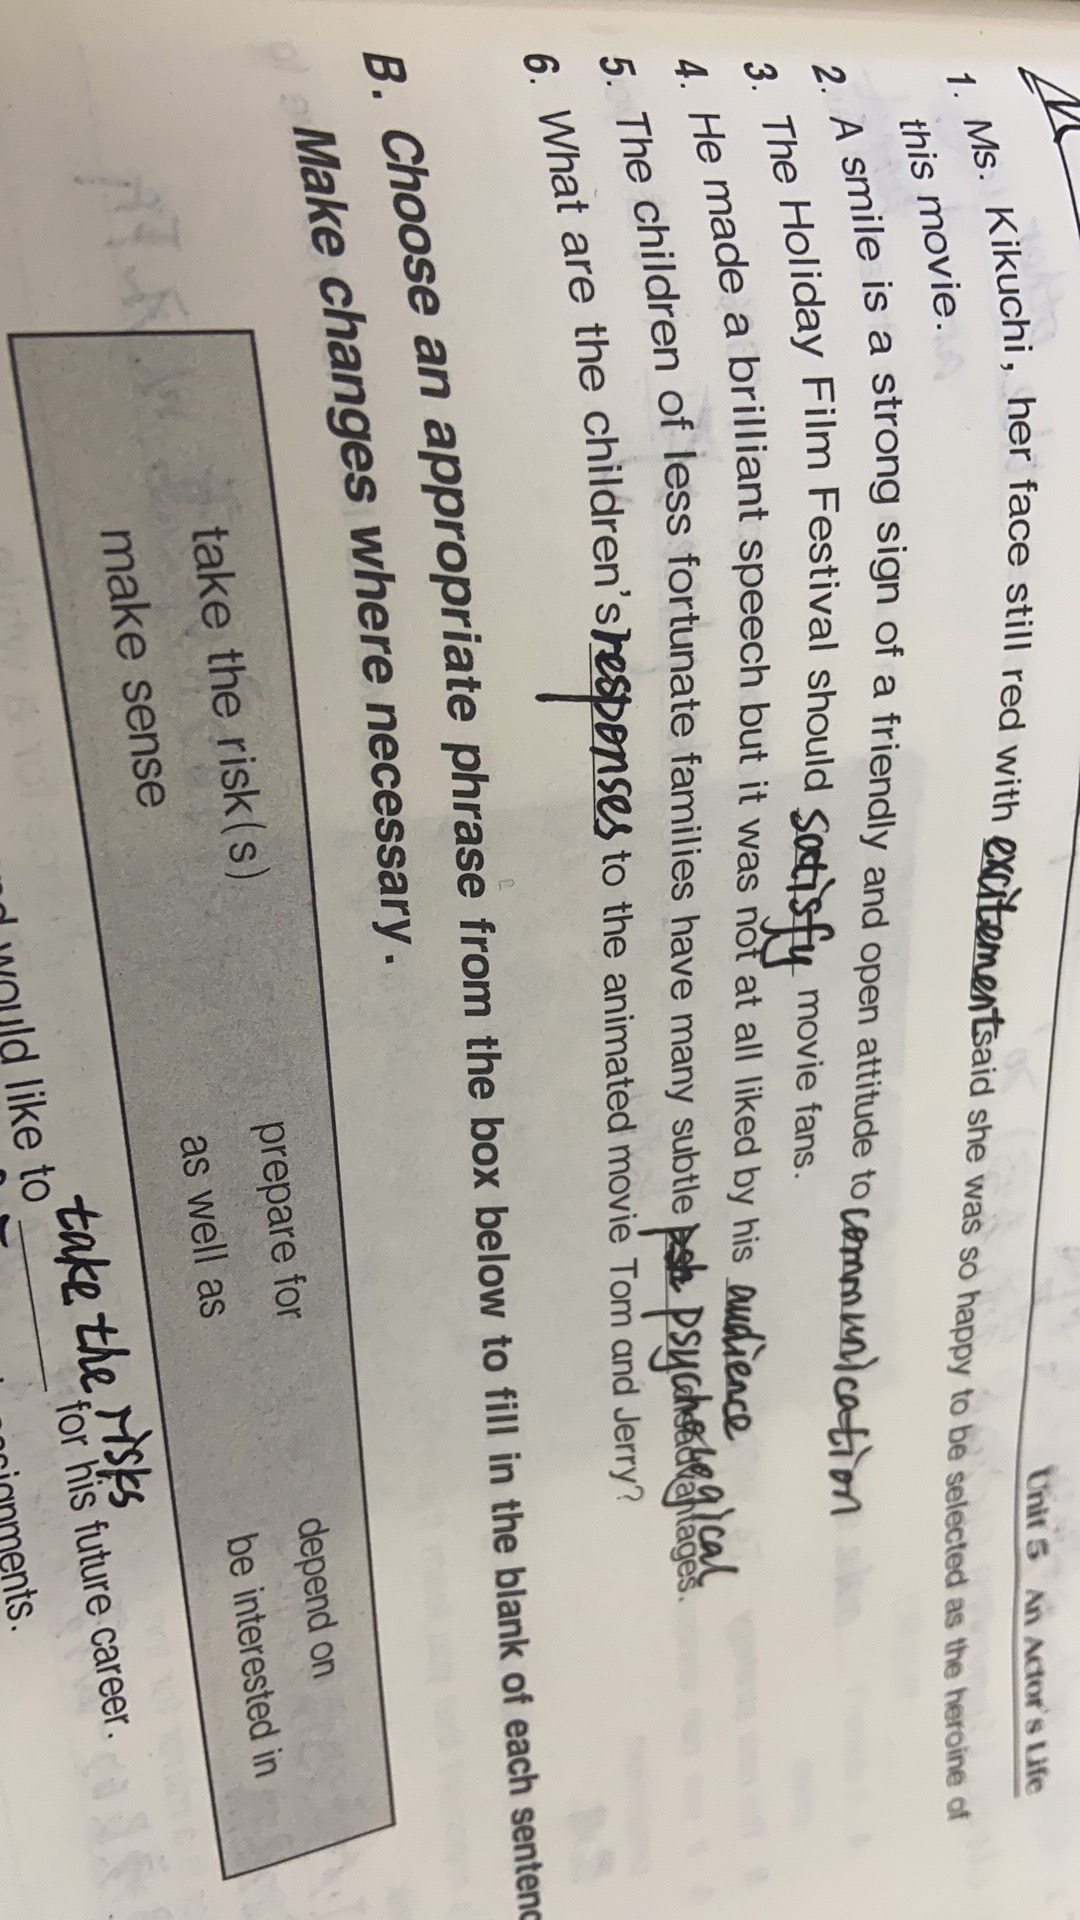 Unit 5 An Actor's Life
1. Ms. Kikuchi, her face still red with excitement said she was so happy to be selected as the heroine of
this movie.
2. A smile is a strong sign of a friendly and open attitude to communication
3. The Holiday Film Festival should satisfy movie fans.
4. He made a brilliant speech but it was not at all liked by his audience
5. The children of less fortunate families have many subtle psychological
6. What are the children's responses to the animated movie Tom and Jerry?
B. Choose an appropriate phrase from the box below to fill in the blank of each
Make changes where necessary.
take the risk(s) prepare for depend on
make sense as well as be interested in
take the risks for his future career.
would like to